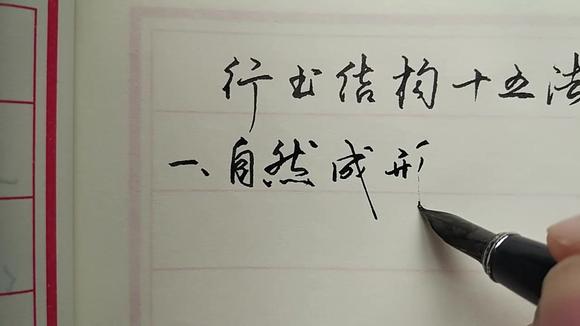 行书结构十五法
一、自然成形